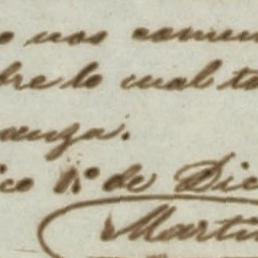 o nos comun
bre lo cual to
anza.
ico 1.º de Dic
Martin